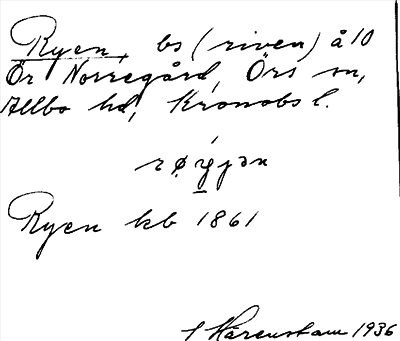 Ryen, bs (riven) å 10
Ör Norregård, Örs sn,
Allbo hd, Kronobs l.
rø̀y̱jən
Ryen kb 1861
S Härenstam 1936